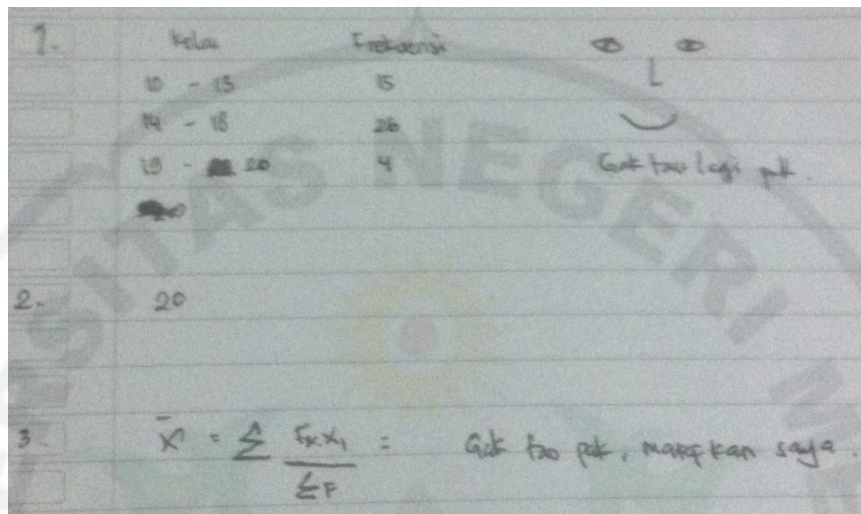 1. Kelas Frekuensi
10 - 13 15
14 - 18 26
19 - 20 4 Gak tau lagi pak.
2. 20
3. X̄ = Σ Fx X₁ / ΣF = Gak tau pak, maafkan saya.
SITAS NEGERI M